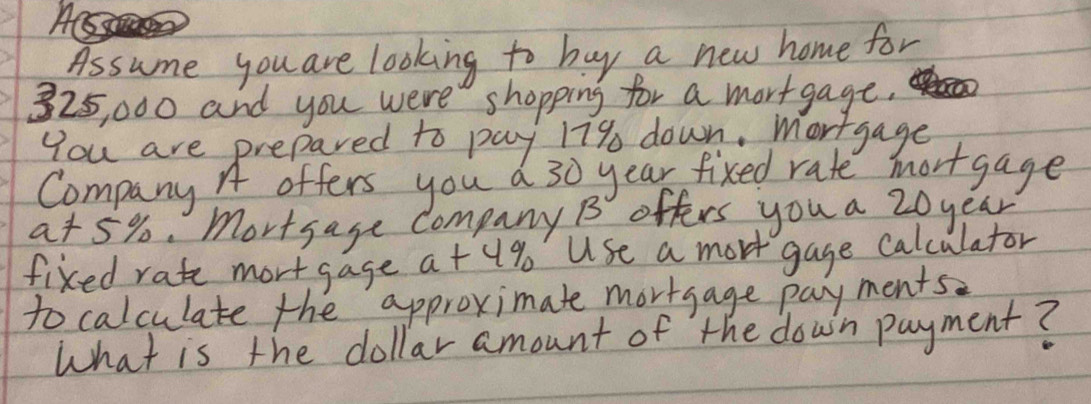 Assume you are looking to buy a new home for
325,000 and you were shopping for a mortgage.
You are prepared to pay 17% down. Mortgage
Company A offers you a 30 year fixed rate mortgage
at 5%. Mortgage Company B offers you a 20 year
fixed rate mortgage at 4% Use a mortgage calculator
to calculate the approximate mortgage payments.
What is the dollar amount of the down payment?